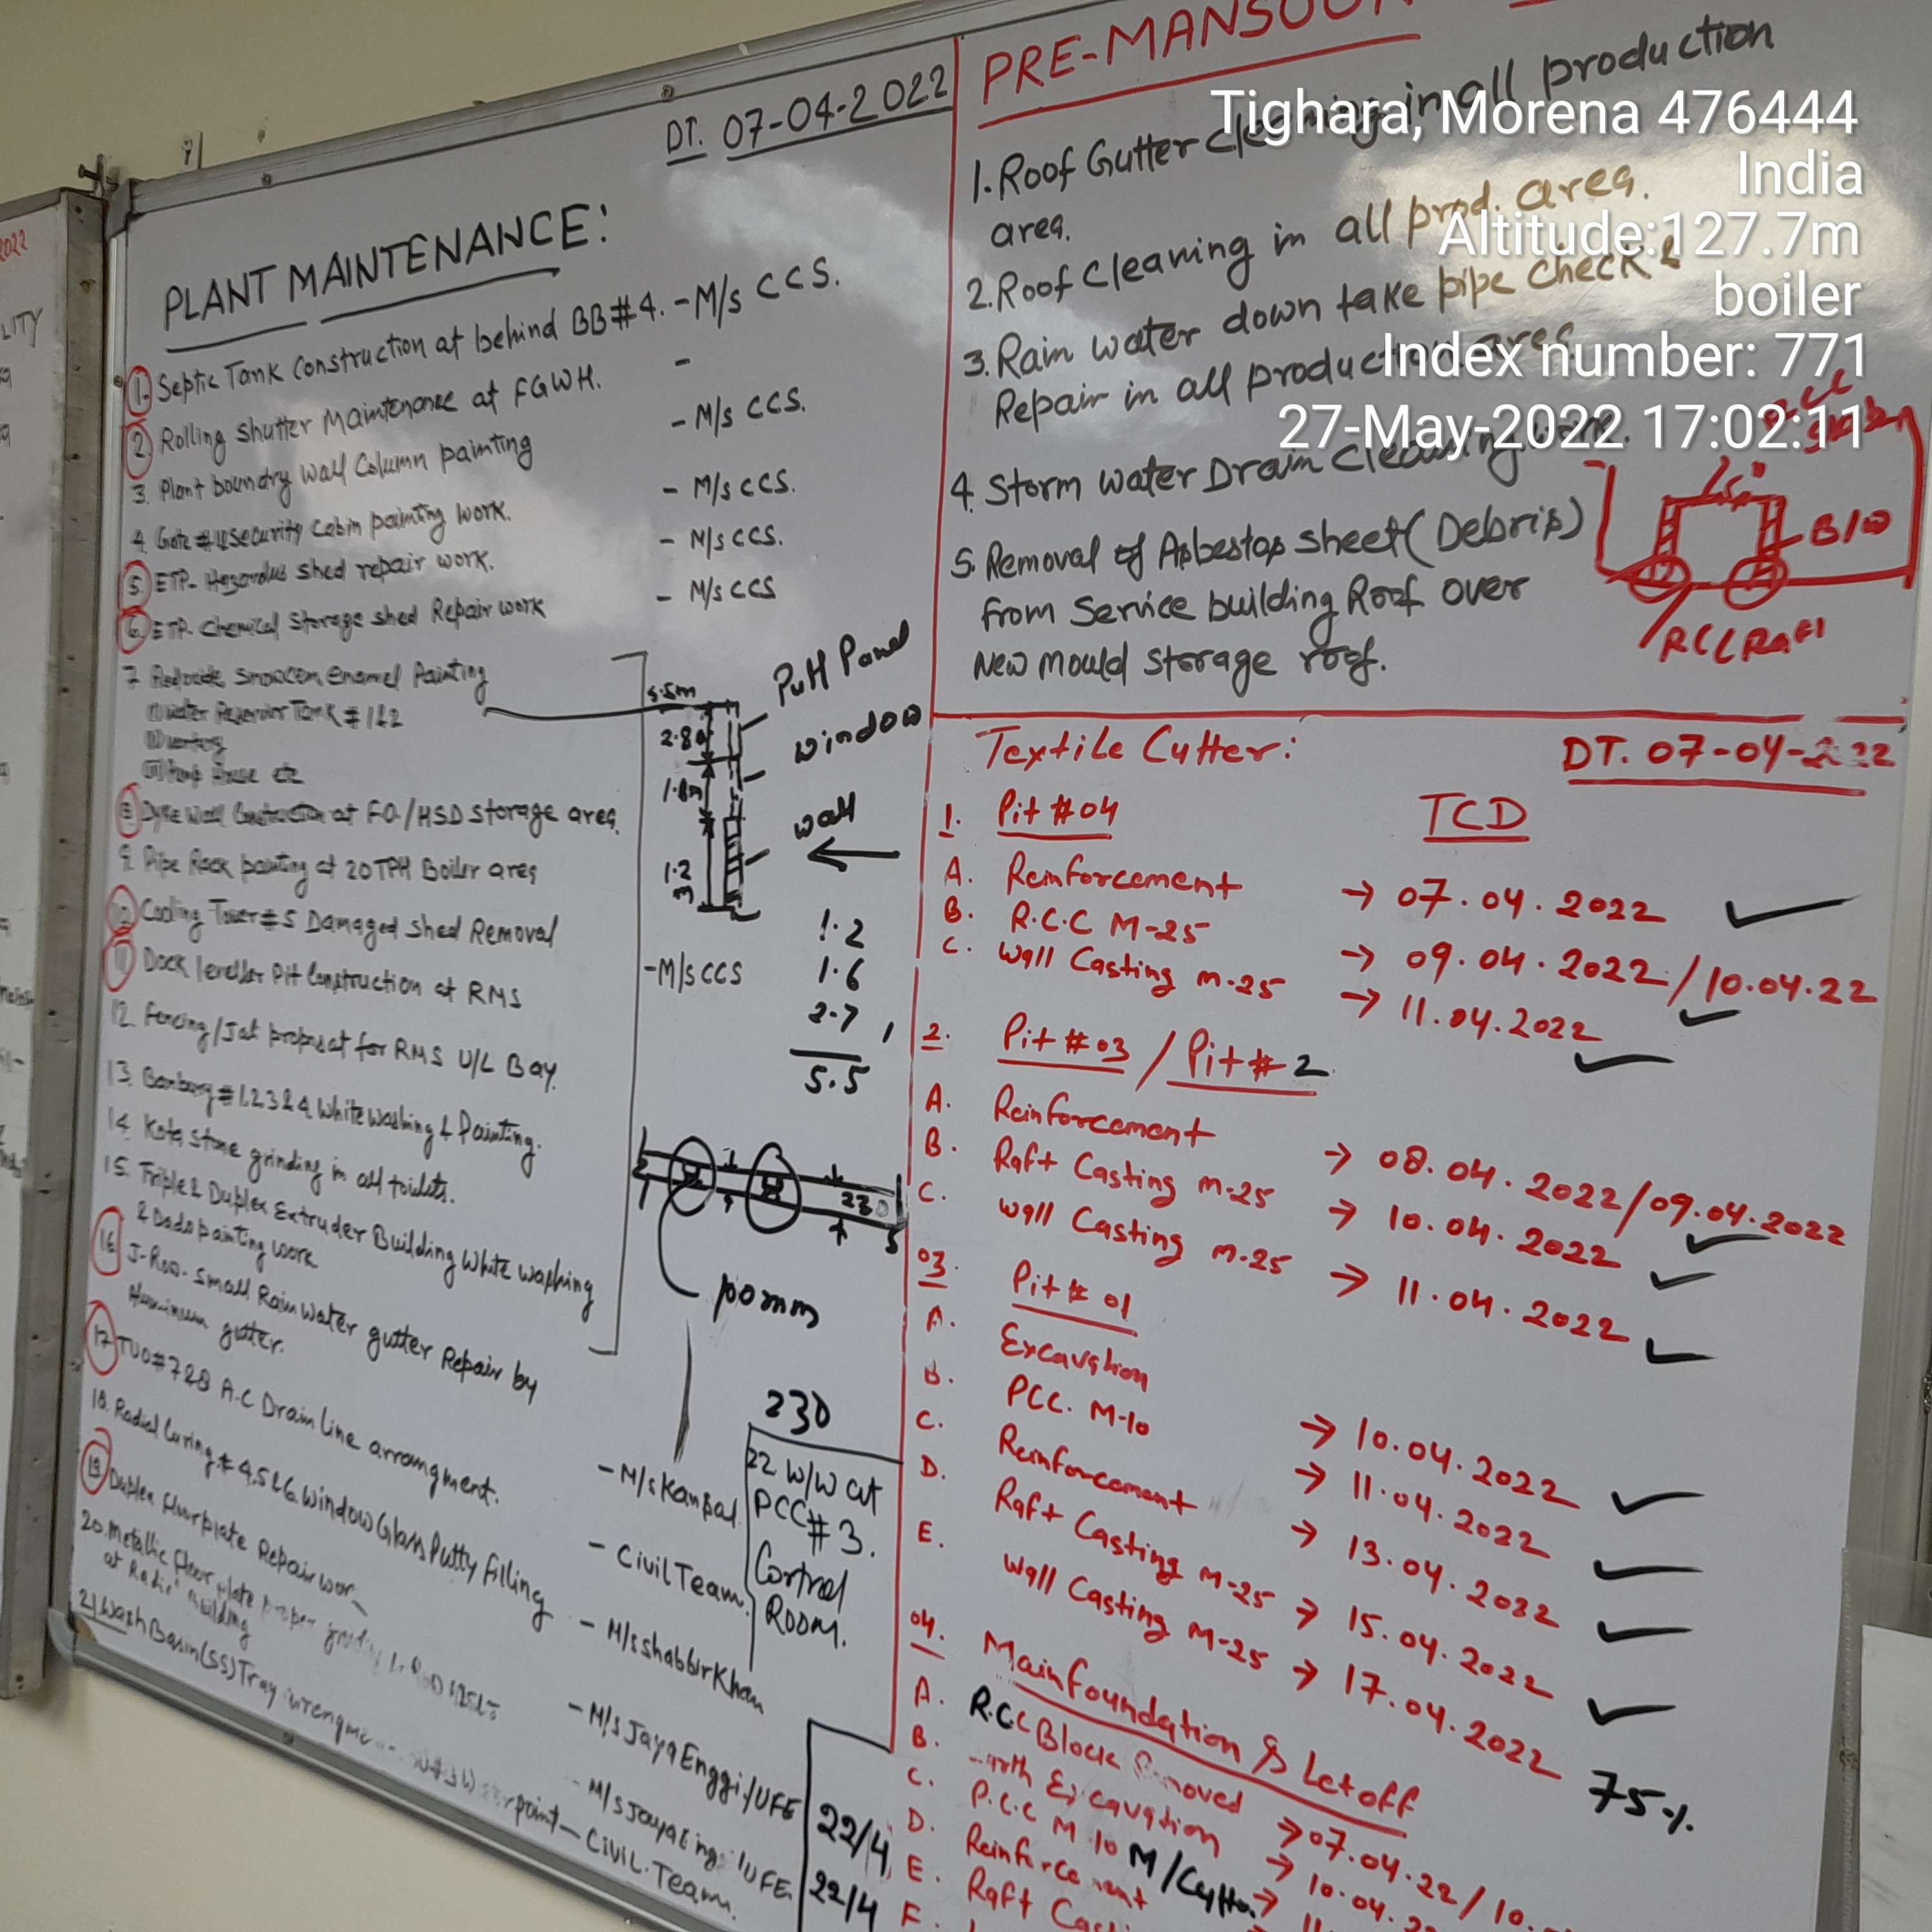 DT. 07-04-2022
PLANT MAINTENANCE:
1. Septic Tank Construction at behind BB#4. - M/s CCS.
2. Rolling Shutter Maintenance at FGWH. -
3. Plant boundry wall Column painting - M/s CCS.
4. Gate #4 Security Cabin painting work. - M/s CCS.
5. ETP- Hazardus shed repair work. - M/s CCS.
6. ETP- Chemical Storage shed Repair work - M/s CCS
7. Enamel Painting
(i) water Reservoir Tank #1&2
(iii) Pump House etc
8. Dyke wall Construction at FO/HSD storage area.
9. Pipe Rack painting at 20TPH Boiler area
10. Cooling Tower #5 Damaged shed Removal
11. Dock leveller Pit Construction at RMS - M/s CCS
12. Fencing/Jali proposal for RMS U/L Bay.
13. Banbury #1,2,3&4 White washing & Painting.
14. Kota Stone grinding in all toilets.
15. Triple & Duplex Extruder Building White washing
& Dado painting work
16. Small Rain Water gutter Repair by
Aluminum gutter.
17. TUO#7&8 A.C Drain line arrangment. - M/s Kansal
18. Radial Curing #4,5&6 Window Glass Putty filling - Civil Team.
19. Duplex floorplate Repair - M/s Shabbir Khan
20. Metallic floor plate - M/s Jaya Enggi./UFE 22/4
at Building - M/s Jaya Engg./UFE. 22/4
21. Wash Basin (SS) Tray point - Civil Team.
5.5m
2.8
1.6m
1.2
m
Puff Panel
window
wall
1.2
1.6
2.7
5.5
230
230
22 W/W at
PCC#3.
Control
Room.
PRE-MANSOON
1. Roof Gutter cleaning in all production
area.
2. Roof Cleaning in all prod. area.
3. Rain water down take pipe check &
Repair in all production area.
4. Storm water Drain cleaning work.
5. Removal of Asbestos sheet (Debris)
from Service building Roof over
New mould storage roof.
RCC
Slab
B/W
RCC Raft
Textile Cutter: DT. 07-04-2022
TCD
1. Pit #04
A. Reinforcement → 07.04.2022
B. R.C.C M-25 → 09.04.2022/10.04.22
C. Wall Casting m-25 → 11.04.2022
2. Pit #03 / Pit# 2
A. Reinforcement → 08.04.2022/09.04.2022
B. Raft Casting m-25 → 10.04.2022
C. Wall Casting m-25 → 11.04.2022
03. Pit# 01
A. Excavation → 10.04.2022
B. PCC. M-10 → 11.04.2022
C. Reinforcement → 13.04.2022
D. Raft Casting M-25 → 15.04.2022
E. Wall Casting M-25 → 17.04.2022 75%
04. Main foundation & Letoff
A. R.C.C Block Removed → 07.04.22/10.
B. Excavation → 10.04.
C. P.C.C M-10 M/Cutter. →
D. Reinforcement
E. Raft
F.
2022
LITY
Tighara, Morena 476444
India
Altitude:127.7m
boiler
Index number: 771
27-May-2022 17:02:11